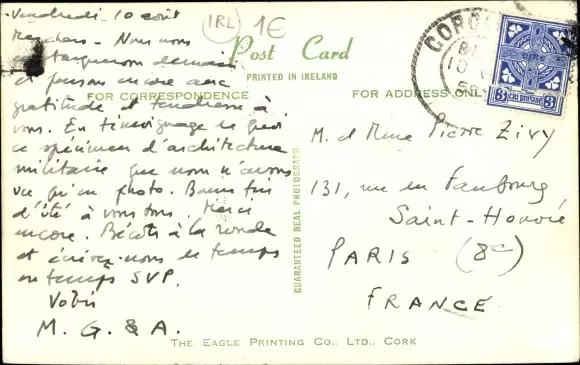 Vendredi 10 août
(IRL) 1€
Post Card
PRINTED IN IRELAND
FOR CORRESPONDENCE
FOR ADDRESS ONLY
très chers - Nous nous
demain
et pensons encore avec
gratitude et tendresse à
vous. En témoignage
ce spécimen d'architecture
militaire que nous n'avons
vu qu'en photo. Bonne fin
d'été à vous tous. Merci
encore. Bécots à la ronde
et écrivez-nous de temps
en temps SVP.
M. G. & A.
GUARANTEED REAL PHOTOGRAPH
CORC
10
3 3
M. et Mme Pierre Zivy
131, rue du Faubourg
Saint-Honoré
PARIS (8e)
FRANCE
THE EAGLE PRINTING CO., LTD., CORK